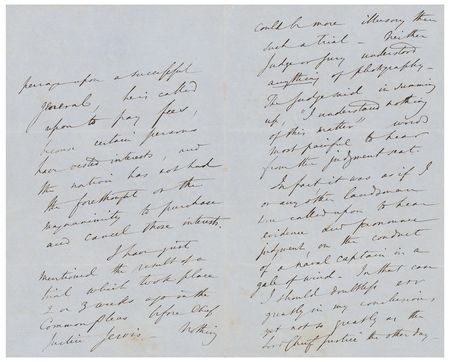 peerage upon a successful
general, he is called
upon to pay fees,
because certain persons
have vested interests, and
the nation has not had
the forethought or the
magnanimity to purchase
and cancel those interests.
I have just
mentioned the result of a
trial which took place
2 or 3 weeks ago in the
Common Pleas before Chief
Justice Jervis. Nothing
could be more illusory than
such a trial - Neither
Judge or jury understood
anything of photography -
The judge said in summing
up, "I understand nothing
of this matter" words
most painful to hear
from the judgment seat.
In fact it was as if I
or any other landsman
were called upon to hear
evidence and pronounce
judgment on the conduct
of a naval captain in a
gale of wind. In that case
I should doubtless err
greatly in my conclusion,
yet not so greatly as the
Lord Chief Justice the other day -